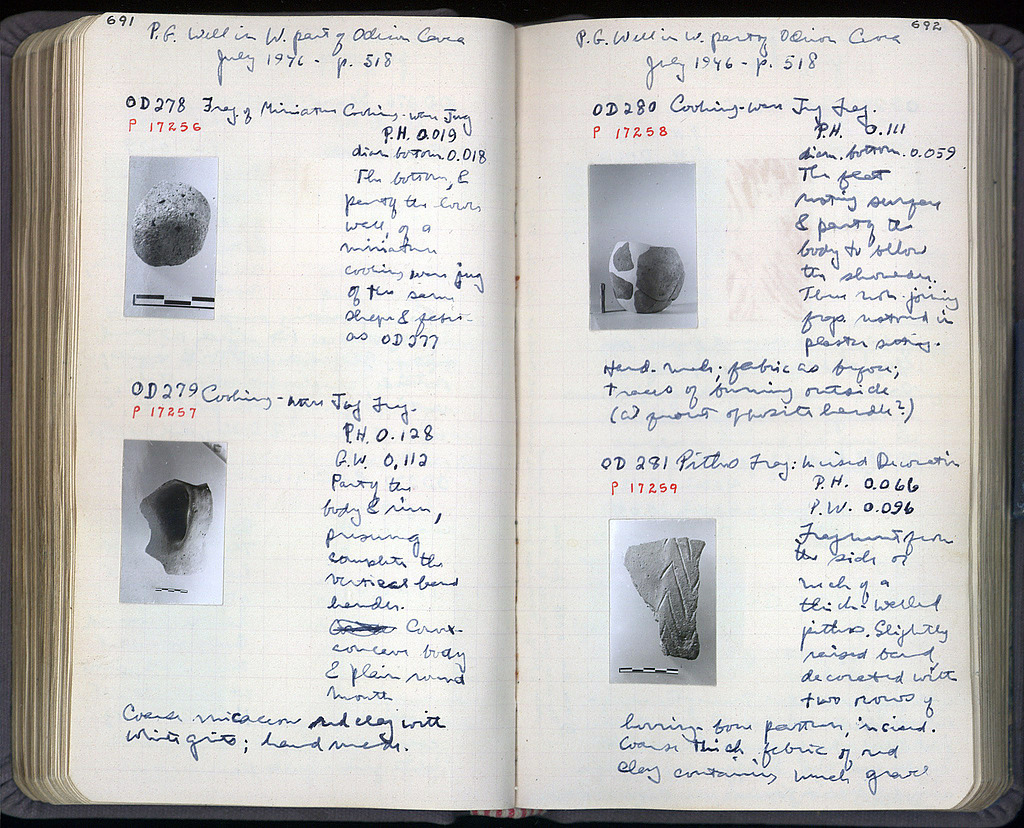 691
P.G. Well in W. part of Odeion Cavea
July 1946 - p. 518
OD 278 Frag. of Miniature Cooking-ware Jug
P 17256
P.H. 0.019
diam. bottom. 0.018
The bottom, &
part of the lower
wall, of a
miniature
cooking ware jug
of the same
shape & fabric
as OD 277
OD 279 Cooking-ware Jug Frg.
P 17257
P.H. 0.128
G.W. 0.112
Part of the
body & rim,
preserving
complete the
vertical band
handle.
Convex-
concave body
& plain round
mouth
Coarse micaceous red clay with
white grits; hand made.
692
P.G. Well in W. part of Odeion Cavea
July 1946 - p. 518
OD 280 Cooking-ware Jug Frg.
P 17258
P.H. 0.111
diam. bottom. 0.059
The flat
resting surface
& part of the
body to below
the shoulder.
Three non-joining
frags. restored in
plaster setting.
Hand-made; fabric as before;
traces of burning outside
(at front opposite handle?)
OD 281 Pithos Frag: Incised Decoration
P 17259
P.H. 0.066
P.W. 0.096
Fragment from
the side or
neck of a
thick-walled
pithos. Slightly
raised band
decorated with
two rows of
herring-bone pattern, incised.
Coarse thick fabric of red
clay containing much gravel